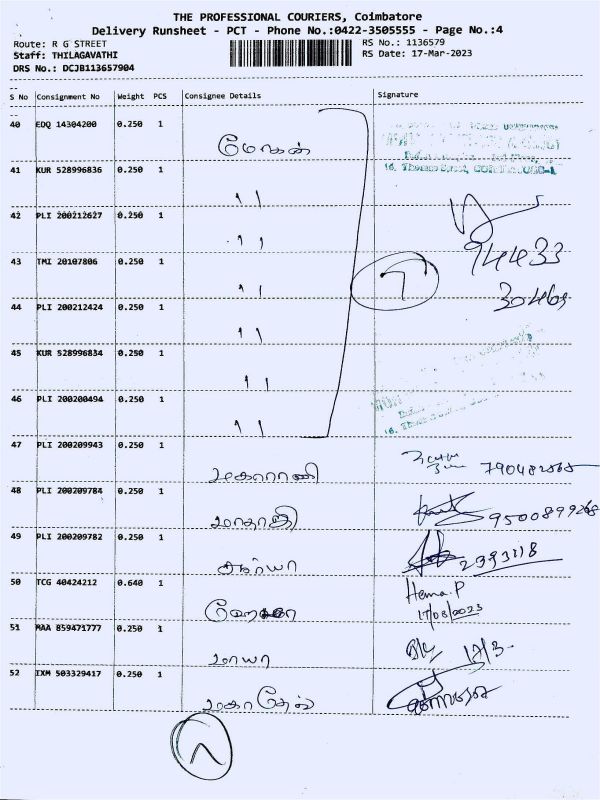 THE PROFESSIONAL COURIERS, Coimbatore
Delivery Runsheet - PCT - Phone No.:0422-3505555 - Page No.:4
Route: R G STREET
RS No.: 1136579
Staff: THILAGAVATHI
RS Date: 17-Mar-2023
DRS No.: DCJB113657904
S No Consignment No Weight PCS Consignee Details Signature
40 EDQ 14304200 0.250 1 மோகன்
41 KUR 528996836 0.250 1 ״
16, Thomas Street,
42 PLI 200212627 0.250 1 ״
94433
43 TMI 20107806 0.250 1 ״
7
44 PLI 200212424 0.250 1 ״
45 KUR 528996834 0.250 1 ״
46 PLI 200200494 0.250 1 ״
47 PLI 200209943 0.250 1 மகாராணி
48 PLI 200209784 0.250 1 மாதாஜி 9500899268
49 PLI 200209782 0.250 1 சூர்யா
50 TCG 40424212 0.640 1 Hema.P
17/03/2023
51 MAA 859471777 0.250 1 மாயா 17/3
52 IXM 503329417 0.250 1